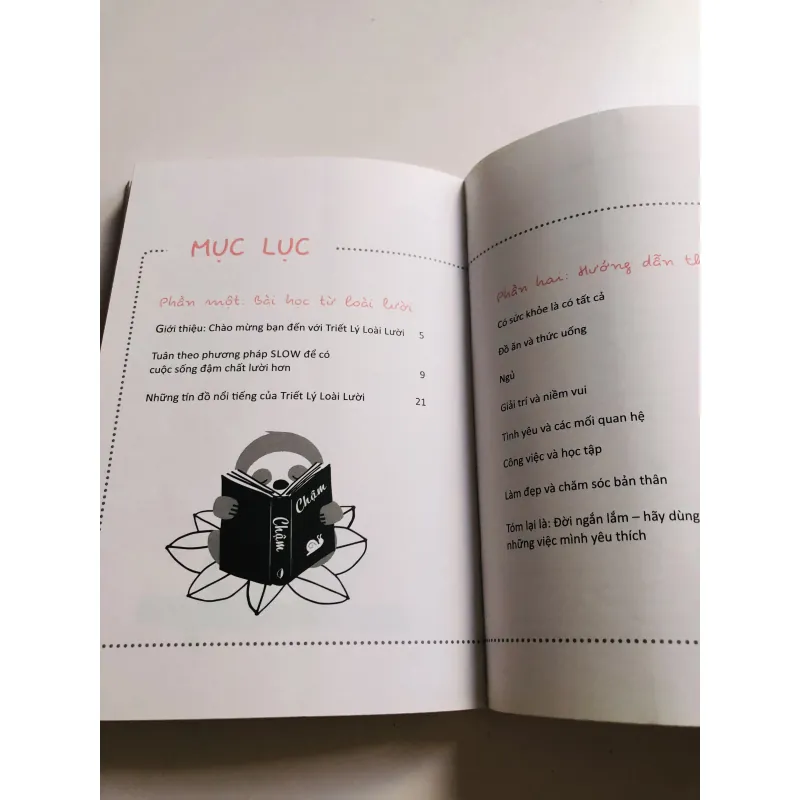 MỤC LỤC
Phần một: Bài học từ loài lười
Giới thiệu: Chào mừng bạn đến với Triết Lý Loài Lười 5
Tuân theo phương pháp SLOW để có
cuộc sống đậm chất lười hơn 9
Những tín đồ nổi tiếng của Triết Lý Loài Lười 21
Chậm
Chậm
Phần hai: Hướng dẫn
Có sức khỏe là có tất cả
Đồ ăn và thức uống
Ngủ
Giải trí và niềm vui
Tình yêu và các mối quan hệ
Công việc và học tập
Làm đẹp và chăm sóc bản thân
Tóm lại là: Đời ngắn lắm – hãy dùng
những việc mình yêu thích